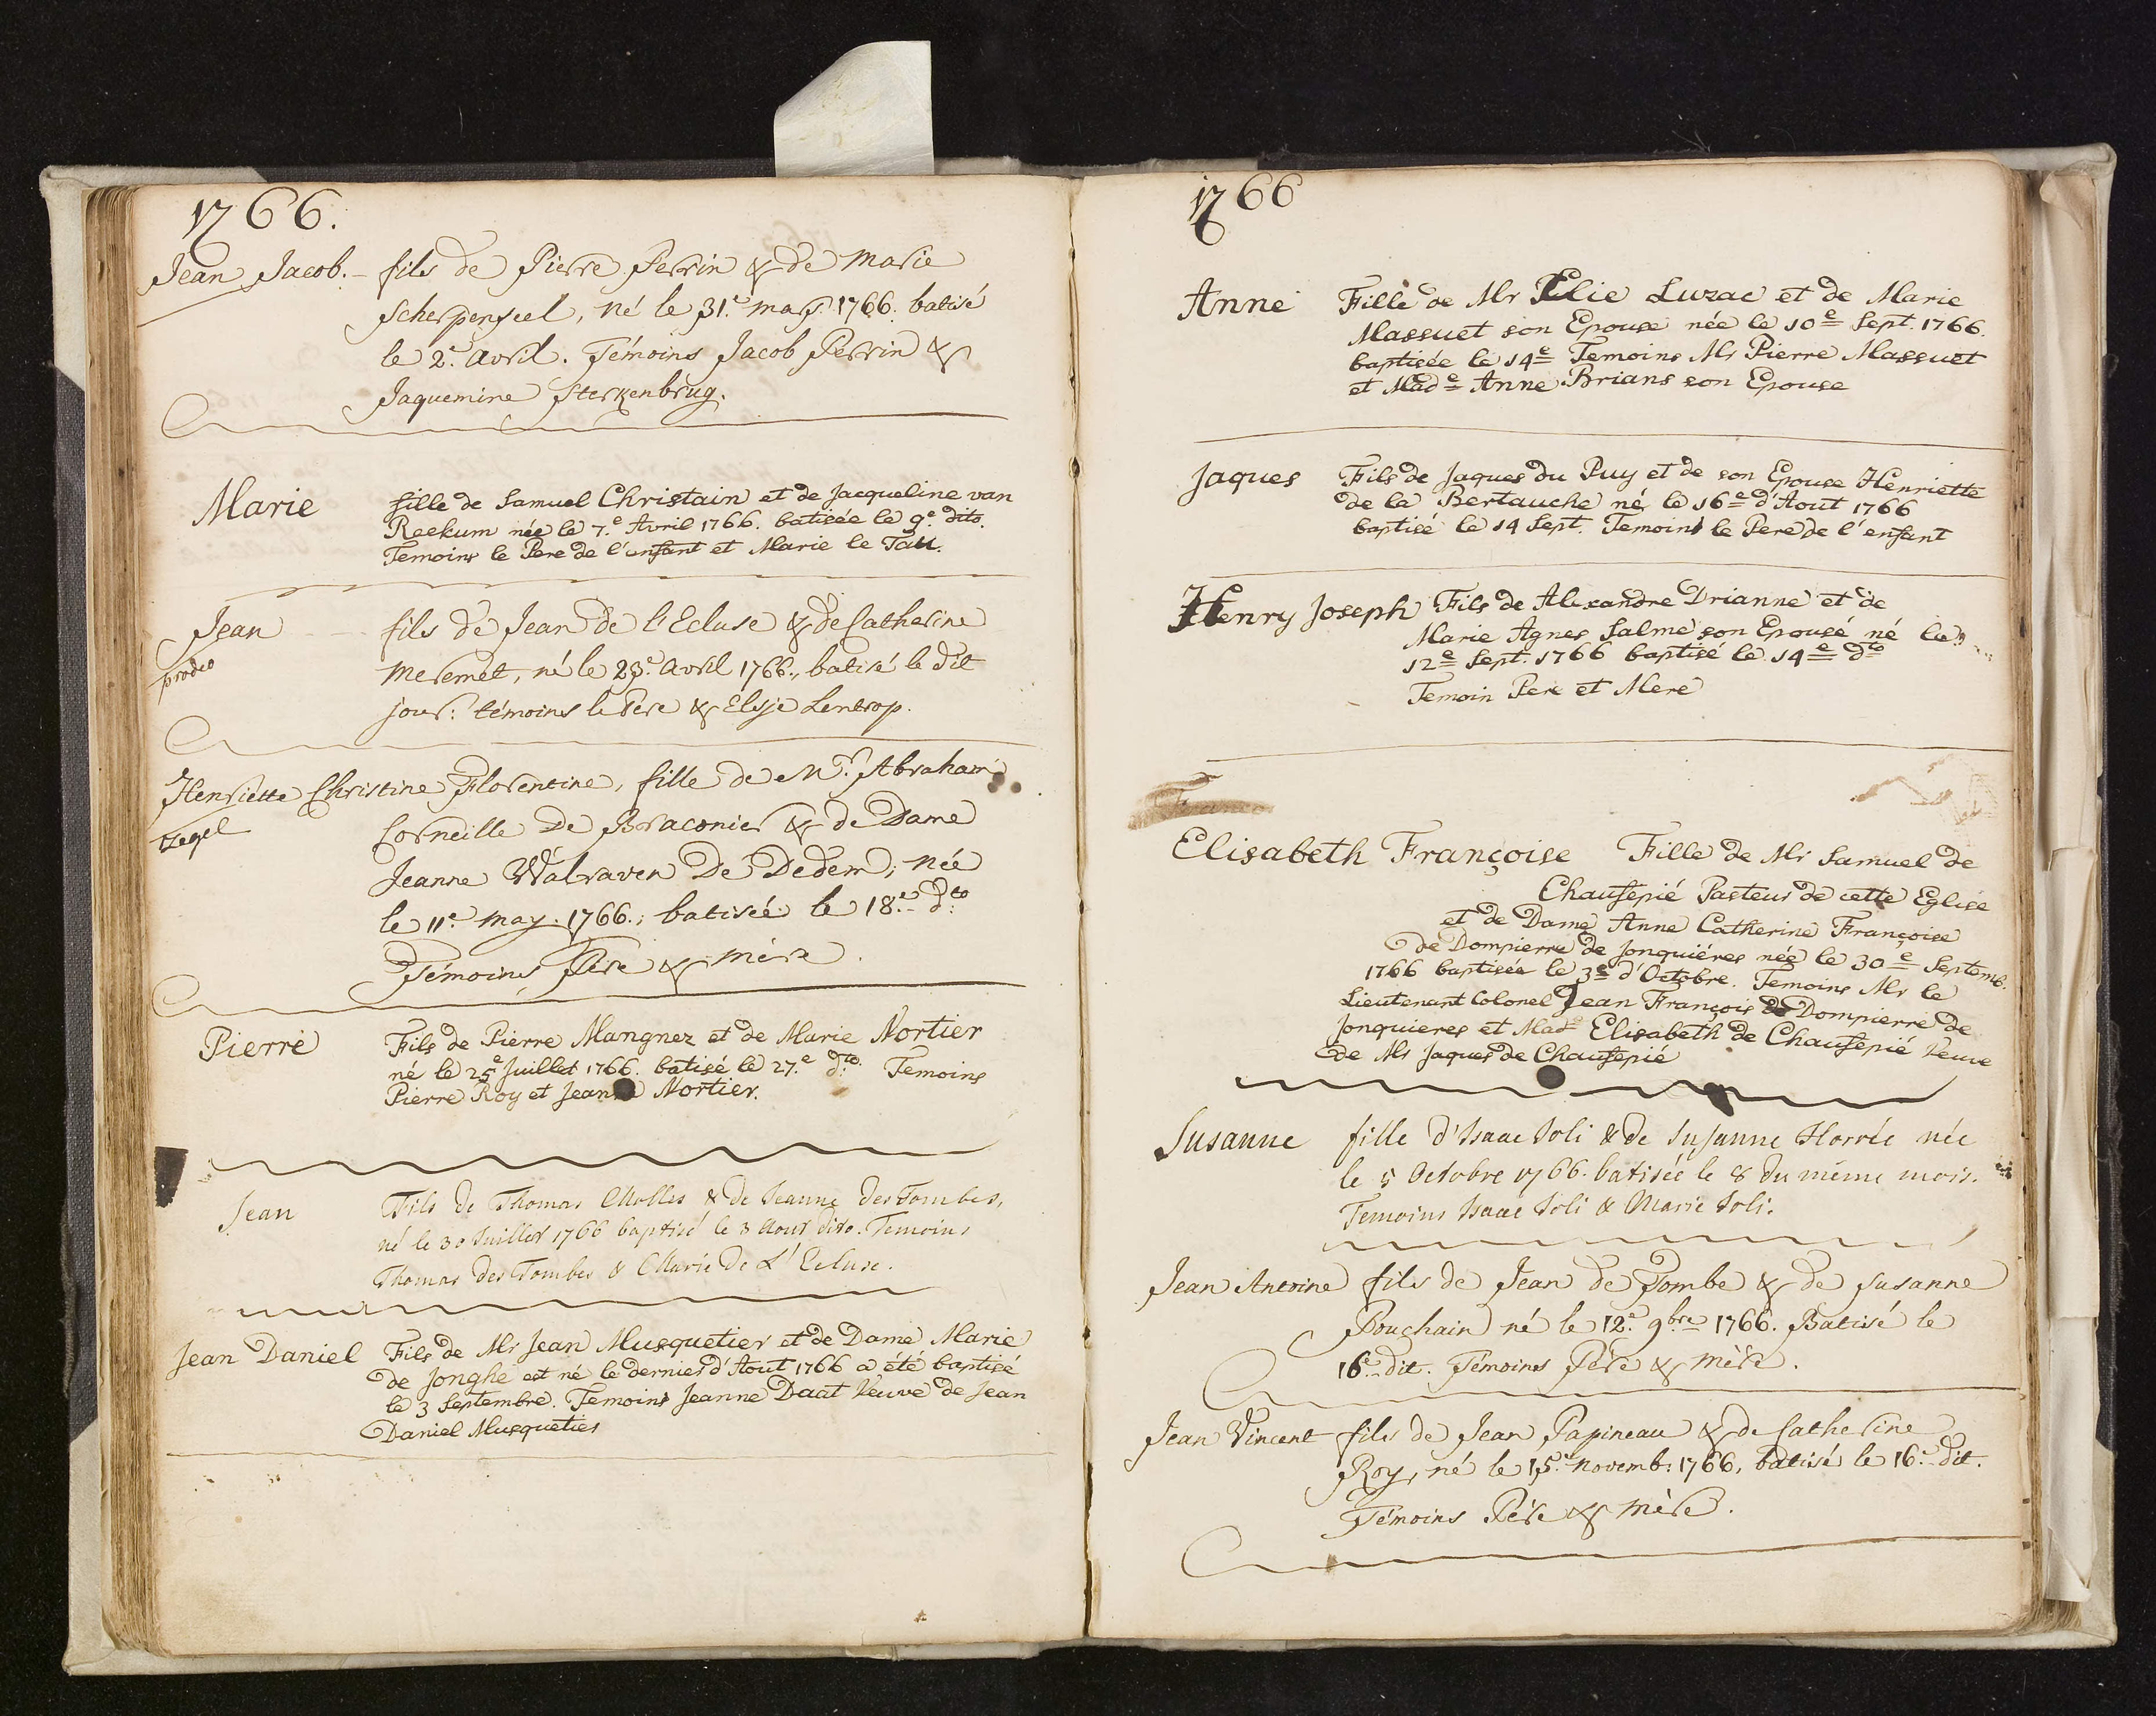 1766.
Jean Jacob. fils de Pierre Perrin & de Marie
Scherpenseel, né le 31.e mars. 1766. batisé
le 2.e avril. Témoins Jacob Perrin &
Jaquemine Sterkenbrug.
Marie fille de Samuel Christain et de Jacqueline van
Reekum née le 7.e Avril 1766. batisée le 9.e dito.
Temoins le Pere de l'enfant et Marie le Tau.
Jean fils de Jean de l'Ecluse & de Catherine
prodeo
Mesemet, né le 23.e avril 1766., batisé le dit
jour: témoins le Père & Elsje Lentrop.
Henriette Christine Florentine, fille de Mr. Abraham
zegel
Corneille De Braconier & de Dame
Jeanne Walraven De Dedem; née
le 11.e may. 1766.; batisée le 18.e dto
Témoins Père & mère.
Pierre Fils de Pierre Mangnez et de Marie Mortier
né le 25e Juillet 1766. batisé le 27.e dto. Temoins
Pierre Roy et Jeanne Mortier.
Jean Fils de Thomas Molles & de Jeanne des Tombes,
né le 30 Juillet 1766 baptisé le 3 Aout dito. Temoins
Thomas des Tombes & Marie De L'Ecluse.
Jean Daniel Fils de Mr Jean Musquetier et de Dame Marie
de Jonghe est né le dernier d'Aout 1766 a été baptisé
le 3 Septembre. Temoins Jeanne Daat Veuve de Jean
Daniel Musquetier
1766
Anne Fille de Mr Elie Luzac et de Marie
Massuet son Epouse née le 10e Sept. 1766.
baptisée le 14e Temoins Mr Pierre Massuet
et Made Anne Brians son Epouse
Jaques Fils de Jaques du Puy et de son Epouse Henriette
de la Bertauche né le 16e d'Aout 1766
baptisé le 14 Sept. Temoins le Pere de l'enfant
Henry Joseph Fils de Alexandre Drianne et de
Marie Agnes Salme son Epouse né le
12e Sept. 1766 baptisé le 14e dto
Temoin Pere et Mere
Elisabeth Françoise Fille de Mr Samuel de
Chaufepié Pasteur de cette Eglise
et de Dame Anne Catherine Françoise
de Dompierre de Jonquiéres née le 30e Septemb.
1766 baptisée le 3e d'Octobre. Temoins Mr le
Lieutenant Colonel Jean François de Dompierre de
Jonquieres et Made Elisabeth de Chaufepié Veuve
de Mr Jaques de Chaufepié
Susanne fille d'Isaac Joli & de Susanne Horrée née
le 5 Octobre 1766. batisée le 8 du même mois.
Temoins Isaac Joli & Marie Joli.
Jean Antoine fils de Jean de Tombe & de Susanne
Pouchain né le 12.e 9bre 1766. Batisé le
16.e dit. Témoins Père & mère.
Jean Vincent fils de Jean Papineau & de Catherine
Roy, né le 15.e novemb: 1766, batisé le 16.e dit.
Témoins Père & mère.